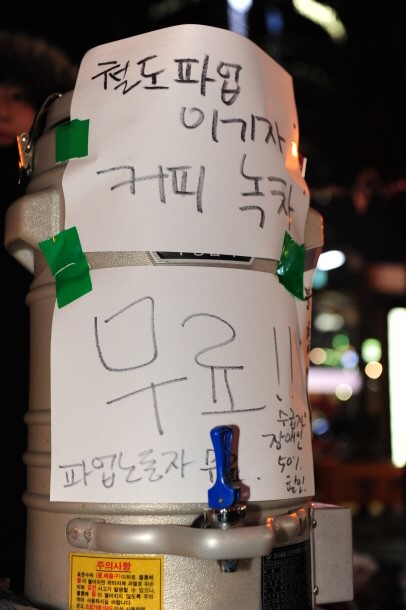 철도파업
이기자!
커피 녹차
무료!!
파업노동자 무료.
수급자
장애인
50%
할인.
주의사항